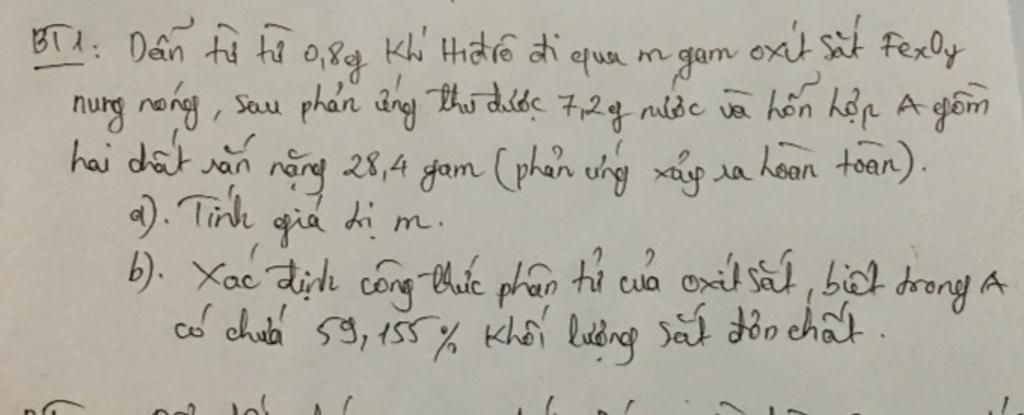 BT1: Dẫn từ từ 0,8g Khí Hiđrô đi qua m gam oxit sắt FexOy
nung nóng, sau phản ứng thu được 7,2g nước và hỗn hợp A gồm
hai chất rắn nặng 28,4 gam (phản ứng xảy ra hoàn toàn).
a). Tính giá trị m.
b). Xác định công thức phân tử của oxit sắt, biết trong A
có chứa 59,155% khối lượng sắt đơn chất.